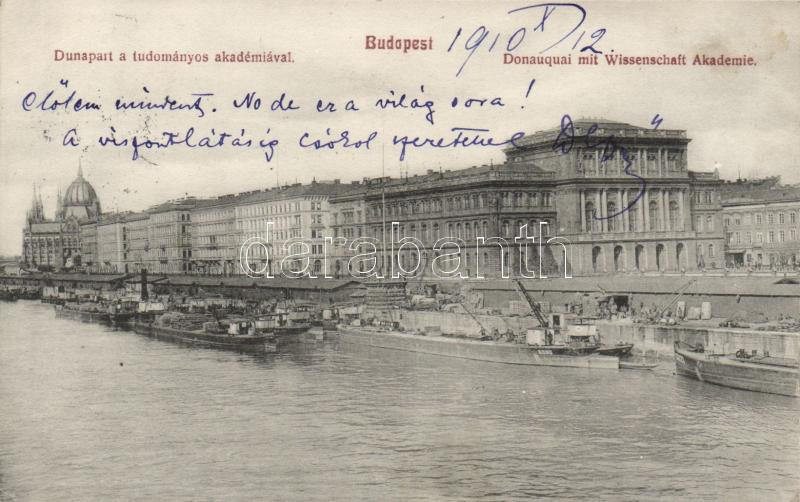 Budapest
1910 X/12
Dunapart a tudományos akadémiával.
Donauquai mit Wissenschaft Akademie.
mindent. No de ez a világ sora!
A viszontlátásig csókol szeretettel
darabanth